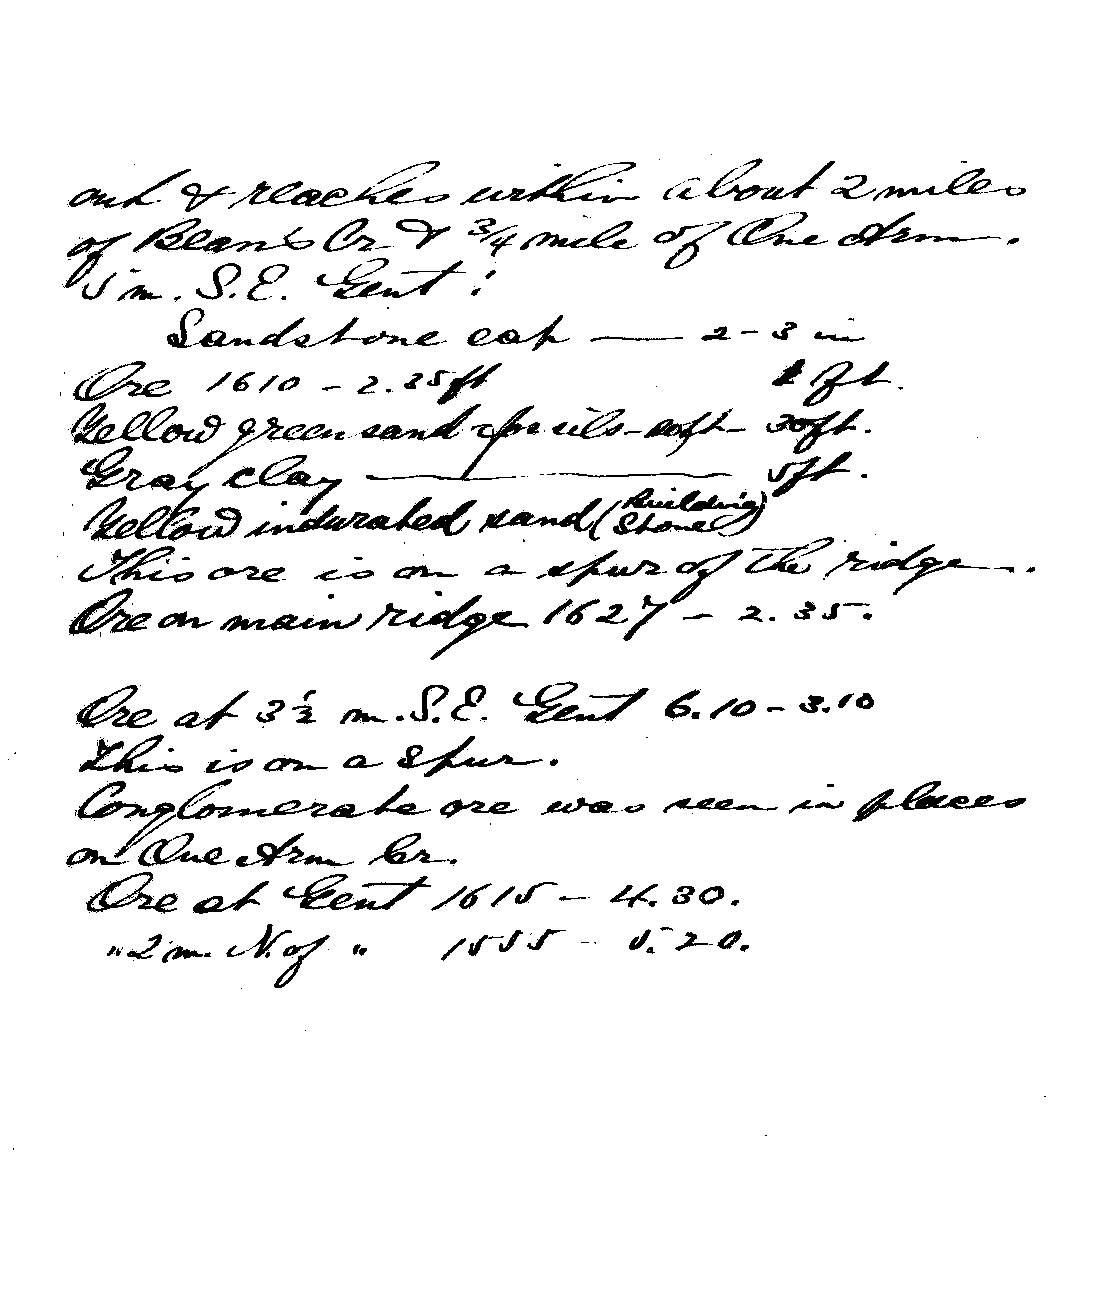 out & reaches within about 2 miles
of Bean's Cr & 3/4 mile of One Arm.
5 m. S.E. Gent:
Sandstone cap — 2-3 in
Ore 1610 - 2.35 ft 2 ft.
Yellow green sand & fossils - soft - 30 ft.
Gray clay — 5 ft.
Yellow indurated sand (Building Stone)
This ore is on a spur of the ridge.
Ore on main ridge 1627 - 2.35.
Ore at 3 1/2 m. S.E. Gent 6.10 - 3.10
This is on a spur.
Conglomerate ore was seen in places
on One Arm Cr.
Ore at Gent 1615 - 4.30.
" 2 m. N. of " 1555 - 5.20.